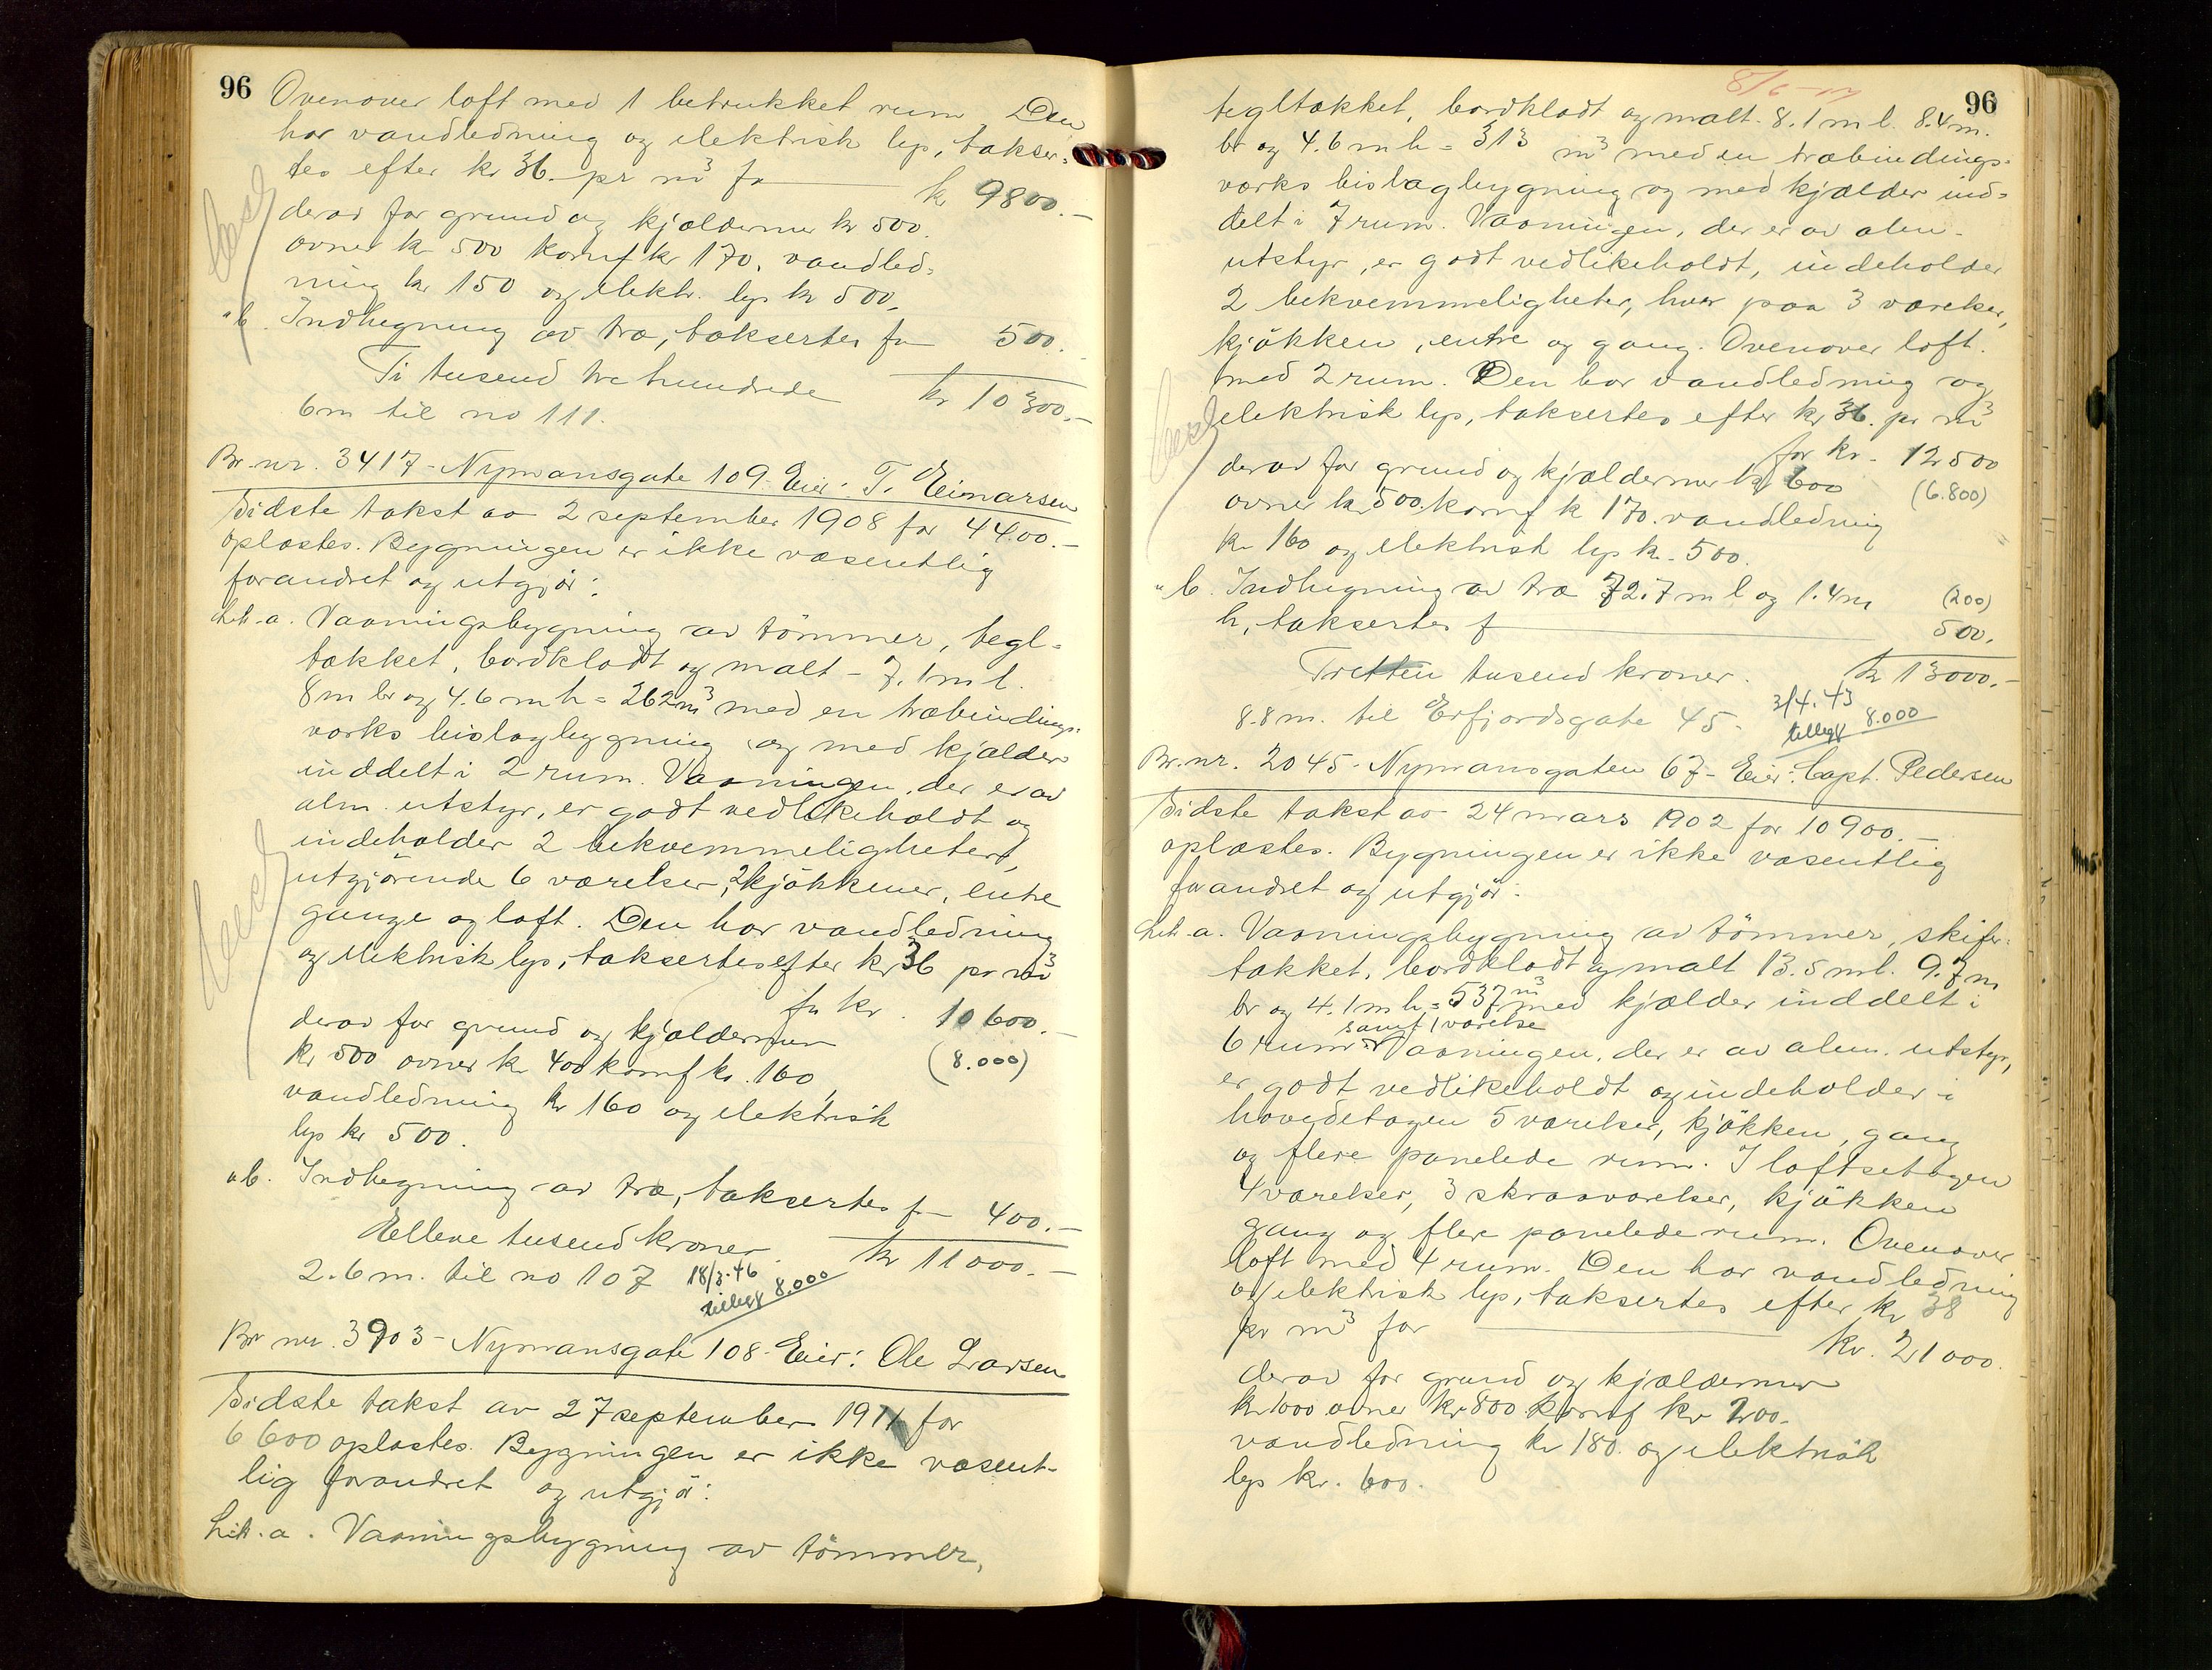 96
Ovenover loft med 1 betrukket rum. Den
har vandledning og elektrisk lys, takser-
tes efter kr 36.- pr m³ for kr 9800.-
derav for grund og kjældermur kr 500.
ovner kr 500 komf kr 170, vandled-
ning kr 150 og elektr. lys kr 500.
"b. Indhegning av træ, taksertes for 500.
Ti tusend tre hundrede kr 10300.-
6m til no 111.
Br.nr. 3417 - Nymansgate 109. Eier: T. Einarsen
Sidste takst av 2 september 1908 for 4400.-
oplæstes. Bygningen er ikke væsentlig
forandret og utgjør:
Lit. a. Vaaningsbygning av tömmer, tegl-
tækket, bordklædt og malt - 7.1 m l.
8m br og 4.6 m h = 262 m³ med en træbindings-
værks bislagbygning og med kjælder
inddelt i 2 rum. Vaaningen, der er av
alm. utstyr, er godt vedlikeholdt og
indeholder 2 bekvemmeligheter,
utgjörende 6 værelser, 2 kjökkener, entre
gange og loft. Den har vandledning
og elektrisk lys, taksertes efter kr 36 pr m³
for kr. 10600.-
derav for grund og kjældermur
(8.000)
kr 500 ovner kr 400 komf kr. 160,
vandledning kr 160 og elektrisk
lys kr 500.
"b. Indhegning av træ, taksertes for 400.-
Elleve tusend kroner. kr 11000.-
2.6 m. til no 107 18/3.46
tillegg 8.000
Br nr. 3903 - Nymansgate 108. Eier: Ole Larsen
Sidste takst av 27 september 1911 for
6600 oplæstes. Bygningen er ikke væsent-
lig forandret og utgjør:
Lit. a. Vaaningsbygning av tömmer,
96
tegltækket, bordklædt og malt. 8.1 m l. 8.4 m.
br og 4.6 m h = 313 m³ med en træbindings-
værks bislagbygning og med kjælder ind-
delt i 7 rum. Vaaningen, der er av alm.
utstyr, er godt vedlikeholdt, indeholder
2 bekvemmeligheter, hver paa 3 værelser,
kjökken, entre og gang. Ovenover loft.
med 2 rum. Den har vandledning og
elektrisk lys, taksertes efter kr 36. pr m³
for kr. 12500
derav for grund og kjældermur kr 600
(6.800)
ovner kr 500. komf k 170. vandledning
kr 160 og elektrisk lys kr. 500.
"b. Indhegning av træ 72.7 m l og 1.4 m
(200)
h, taksertes f 500.
Tretten tusend kroner. kr 13000.-
8.8 m. til Erfjordsgate 45. 3/4.43
tillegg 8.000
Br.nr. 2045 - Nymansgaten 67 - Eier: Capt. Pedersen
Sidste takst av 24 mars 1902 for 10900.-
oplæstes. Bygningen er ikke væsentlig
forandret og utgjør:
Lit. a. Vaaningsbygning av tömmer, skifer-
tækket, bordklædt og malt 13.5 m l. 9.7 m
br og 4.1 m h = 537 m³ med kjælder inddelt i
samt 1 værelse
6 rum. Vaaningen, der er av alm. utstyr,
er godt vedlikeholdt og indeholder i
hovedetagen 5 værelser, kjökken, gang
og flere panelede rum. I loftsetagen
4 værelser, 3 skraaværelser, kjökken
gang og flere panelede rum. Ovenover
loft med 4 rum. Den har vandledning
og elektrisk lys, taksertes efter kr 38
pr m³ for kr. 21000.
derav for grund og kjældermur
kr 1000 ovner kr 800 komf kr 200.
vandledning kr 180. og elektrisk
lys kr. 600.